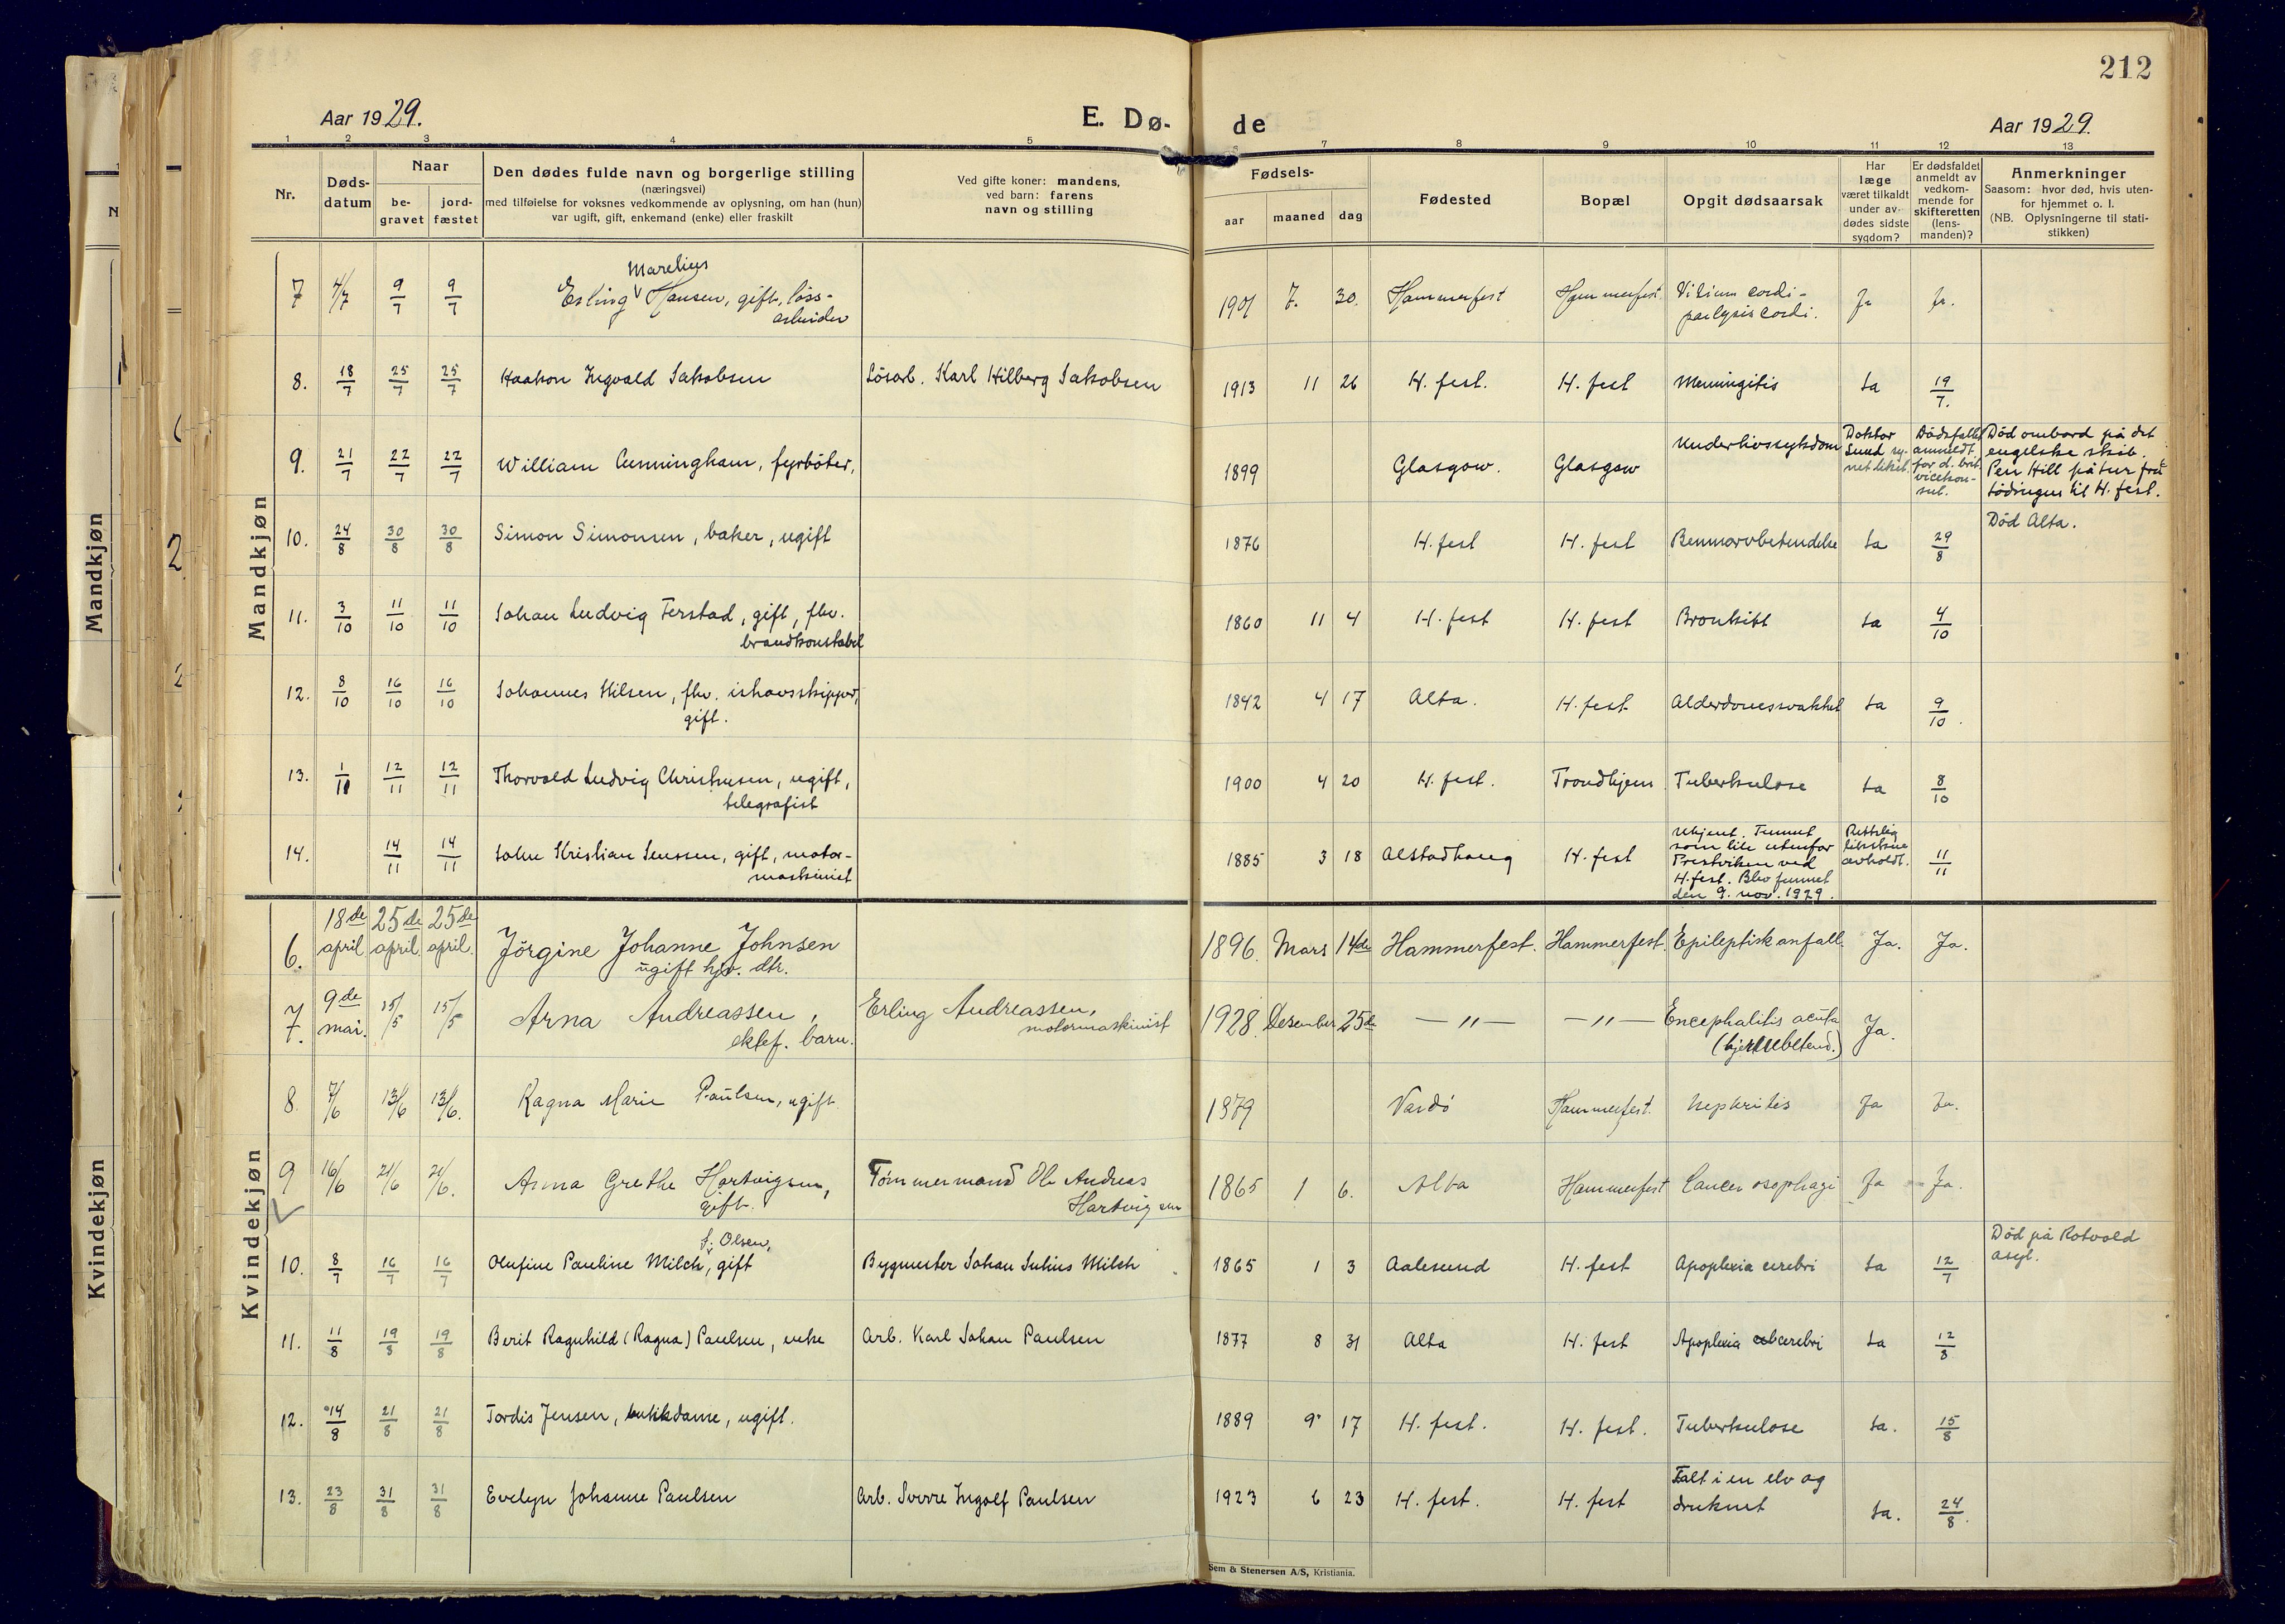 212
Aar 1929.
E. Dø-
de
Aar 1929.
1 2 3 4 5 6 7 8 9 10 11 12 13
Nr.
Døds-
datum
Naar
be-
gravet
jord-
fæstet
Den dødes fulde navn og borgerlige stilling
(næringsvei)
med tilføielse for voksnes vedkommende av oplysning, om han (hun)
var ugift, gift, enkemand (enke) eller fraskilt
Ved gifte koner: mandens,
ved barn: farens
navn og stilling
Fødsels-
aar
maaned
dag
Fødested
Bopæl
Opgit dødsaarsak
Har
læge
været tilkaldt
under av-
dødes sidste
sygdom?
Er dødsfaldet
anmeldt av
vedkom-
mende for
skifteretten
(lens-
manden)?
Anmerkninger
Saasom: hvor død, hvis uten-
for hjemmet o. l.
(NB. Oplysningerne til stati-
stikken)
N
Mandkjøn
Kvindekjøn
Mandkjøn
7 4/7 9/7 9/7 Erling Marelius Hansen, gift, løss-
arbeider
1901 7. 30. Hammerfest Hammerfest Vitium cordi-
paralysis cordi. Ja Ja.
8. 18/7 25/7 25/7 Haakon Ingvald Jakobsen Lösarb. Karl Hilberg Jakobsen 1913 11 26 H. fest. H. fest Meningitis Ja 19/7.
9. 21/7 22/7 22/7 William Cunningham, fyrböter, 1899 Glasgow. Glasgow Underlivssykdom
Doktor
Lund sy-
net liket.
Dödsfallet
anmeldt
for d. brit.
vicekon-
sul.
Död ombord på det
engelske skib
Pen Hill på tur fra
Lödingen til H. fest.
10. 24/8 30/8 30/8 Simon Simonsen, baker, ugift 1876 H. fest H. fest Benmarvbetendelse Ja 29/8 Död Alta.
11. 3/10 11/10 11/10 Johan Ludvig Ferstad, gift, fhv.
brandkonstabel
1860 11 4 H. fest H. fest Bronkitt Ja 4/10
12. 8/10 16/10 16/10 Johannes Nilsen, fhv. ishavsskipper,
gift.
1842 4 17 Alta. H. fest Alderdomssvakhet Ja 9/10.
13. 1/10 12/11 12/11 Thorvald Ludvig Christensen, ugift,
telegrafist
1900 4 20 H. fest. Trondhjem Tuberkulose Ja 8/10
14. 14/11 14/11 John Kristian Jenssen, gift, motor-
maskinist
1885 3 18 Alstadhaug H. fest
Ukjent. Funnet
som lik utenfor
Prestviken ved
H. fest. Blev funnet
den 9. nov. 1929.
Rettslig
likskue
avholdt.
11/11
Kvindekjøn
6. 18de april 25de april 25de april. Jörgine Johanne Johnsen
ugift hjv. dtr.
1896. Mars 14de Hammerfest. Hammerfest. Epileptisk anfall Ja. Ja.
7. 9de mai. 15/5 15/5 Arna Andreassen,
ektef. barn.
Erling Andreassen,
motormaskinist
1928. Desember 25de — " — — " — Encephalitis acuta
(hjernebetend.) Ja.
8. 7/6 13/6 13/6. Ragna Marie Paulsen, ugift 1879 Vardö Hammerfest. Nephritis Ja Ja.
9 16/6 21/6 21/6. Anna Grethe Hartvigsen,
gift.
Tømmermand Ole Andreas
Hartvigsen
1865 1 6. Alta Hammerfest Cancer osophagi Ja Ja.
10. 8/7 16/7 16/7 Olufine Pauline Milch, f. Olsen, gift Bygmester Johan Julius Milch 1865 1 3 Aalesund H. fest Apoplexia cerebri Ja 12/7 Död på Rotvold
asyl.
11. 11/8 19/8 19/8 Berit Ragnhild (Ragna) Paulsen, enke Arb. Karl Johan Paulsen 1877 8 31 Alta H. fest Apoplexia cerebri Ja 12/8
12. 14/8 21/8 21/8 Tordis Jensen, butikkdame, ugift. 1889 9 17 H. fest. H. fest. Tuberkulose Ja. 15/8
13. 23/8 31/8 31/8 Evelyn Johanne Paulsen Arb. Sverre Ingolf Paulsen 1923 6 23 H. fest. H. fest Falt i en elv og
druknet Ja. 24/8.
Sem & Stenersen A/S, Kristiania.